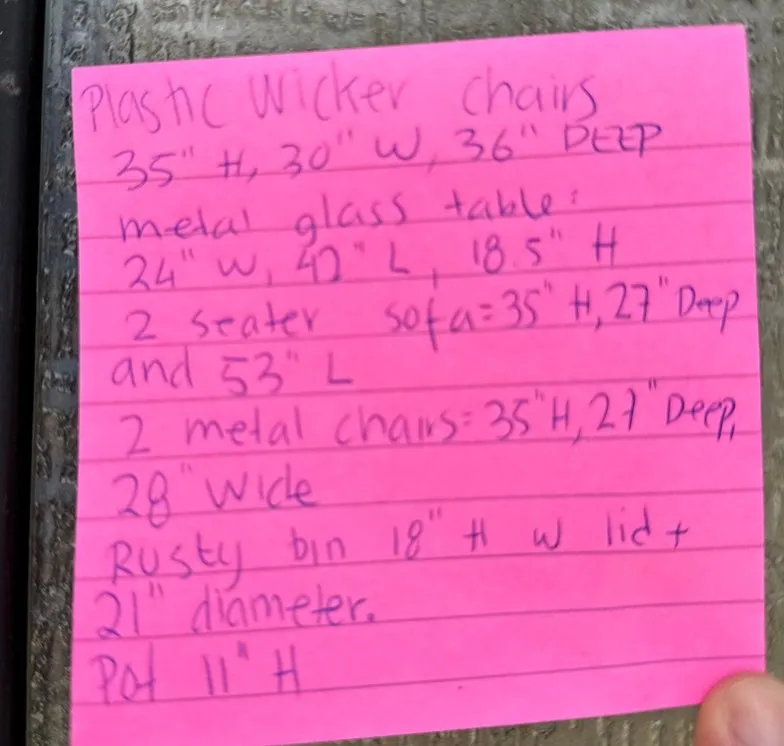 Plastic Wicker chairs
35" H, 30" W, 36" DEEP
metal glass table:
24" W, 42" L, 18.5" H
2 seater sofa=35" H, 27" Deep
and 53" L
2 metal chairs=35"H, 27"Deep,
28" Wide
Rusty bin 18" H w lid +
21" diameter.
Pot 11" H